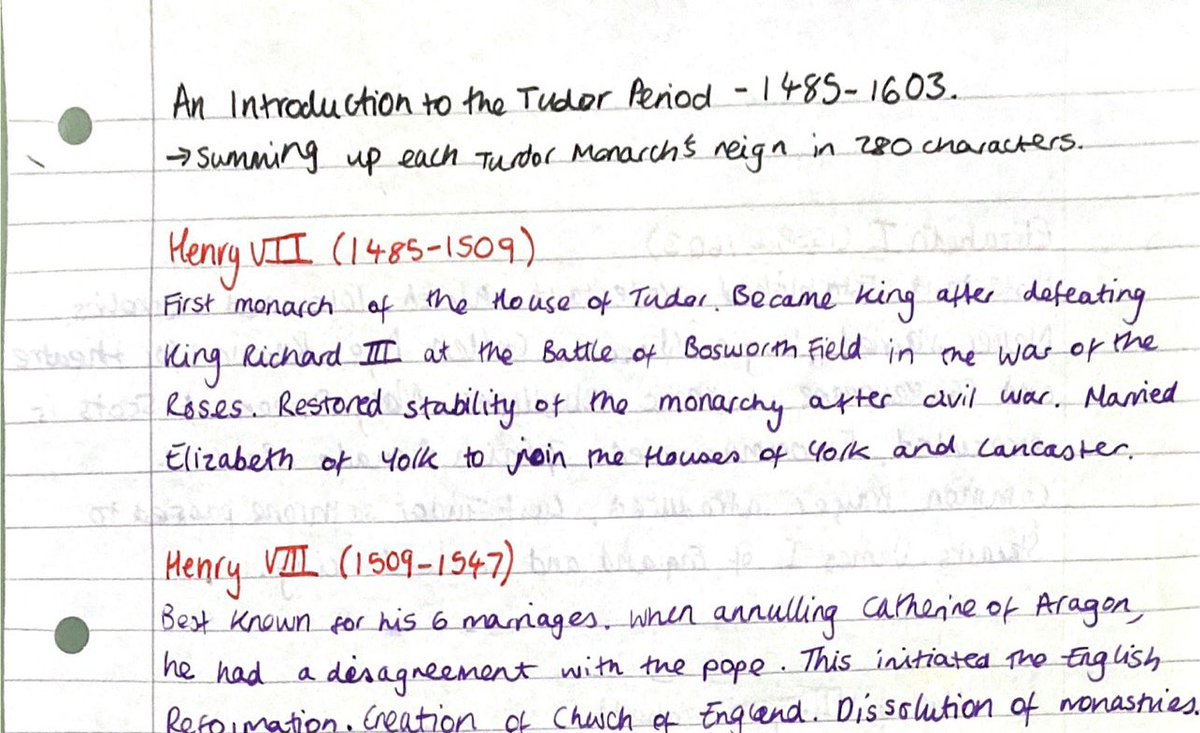 An Introduction to the Tudor Period - 1485-1603.
→ Summing up each Turdor Monarch's reign in 280 characters.
Henry VII (1485-1509)
First monarch of the House of Tudor. Became King after defeating
King Richard III at the Battle of Bosworth Field in the War of the
Roses. Restored stability of the monarchy after civil war. Married
Elizabeth of York to join the Houses of York and Lancaster.
Henry VIII (1509-1547)
Best known for his 6 marriages. When annulling Catherine of Aragon,
he had a disagreement with the pope. This initiated the English
Reformation. Creation of Church of England. Dissolution of monastries.